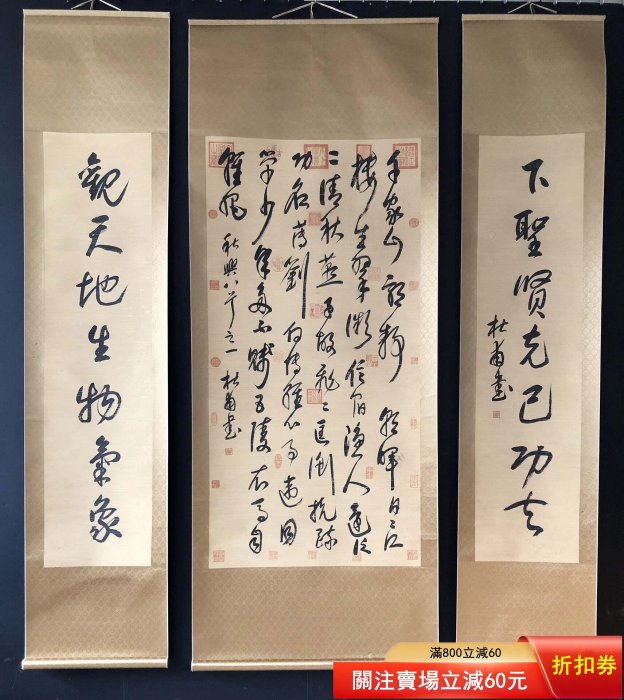 下聖贤克己功夫
杜甫書
千家山郭靜朝暉日々江
樓坐翠微信宿漁人還泛
々清秋燕子故飛々匡衡抗疏
功名薄劉向傳經心事違同
學少年多不賤五陵衣馬自
輕肥 秋興八首之一 杜甫書
觀天地生物氣象
滿800立減60
關注賣場立減60元
折扣券